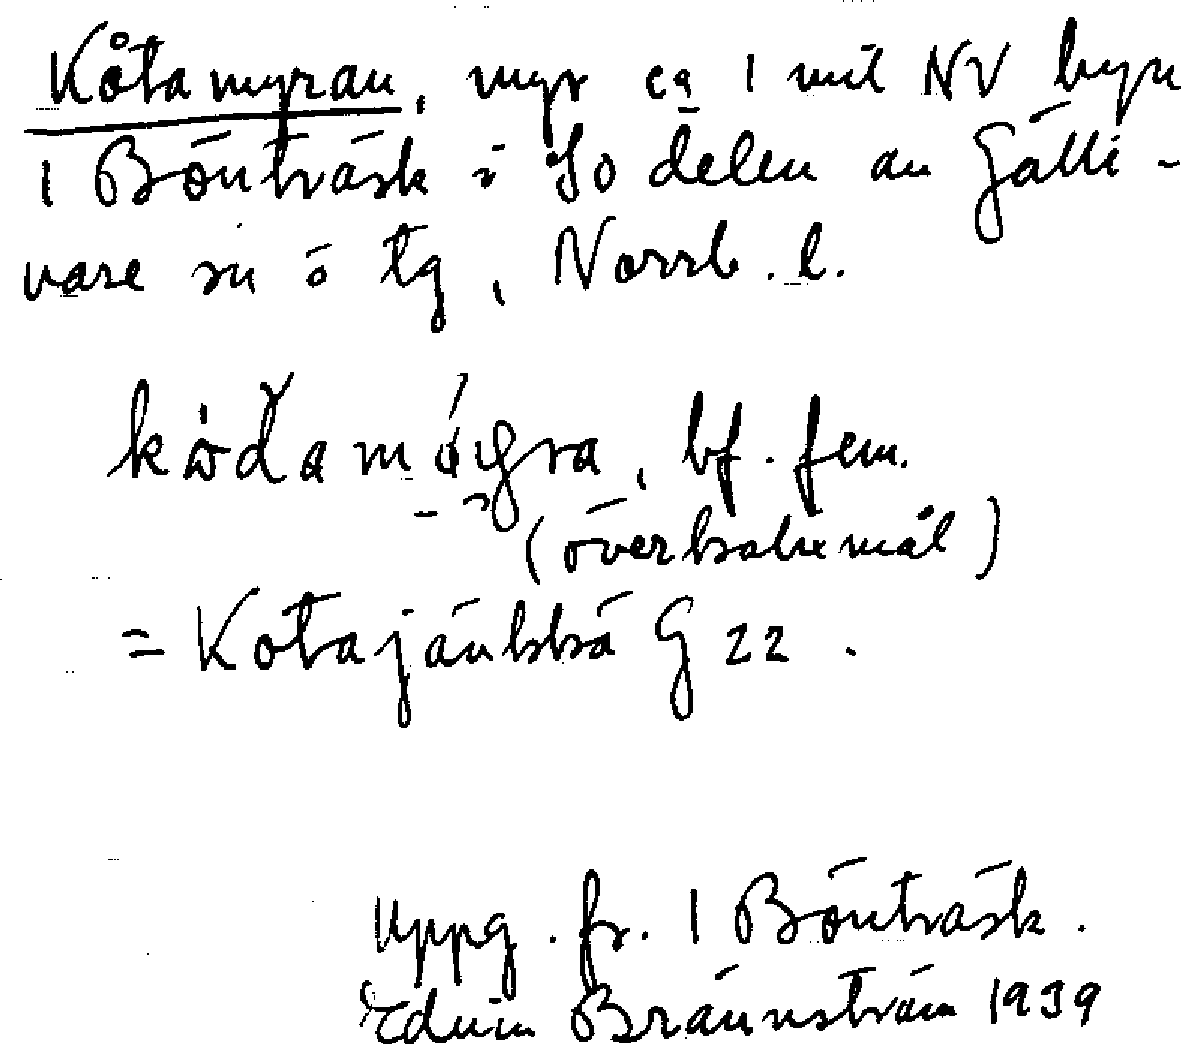 Kåtamyran, myr ca 1 mil NV byn
1 Bönträsk i So delen av Gälli-
vare sn o tg, Norrb. l.
bf. fem.
(överkalixmål)
= Kotajänkkä G 22.
Uppg. fr. 1 Bönträsk.
Edvin Brännström 1939